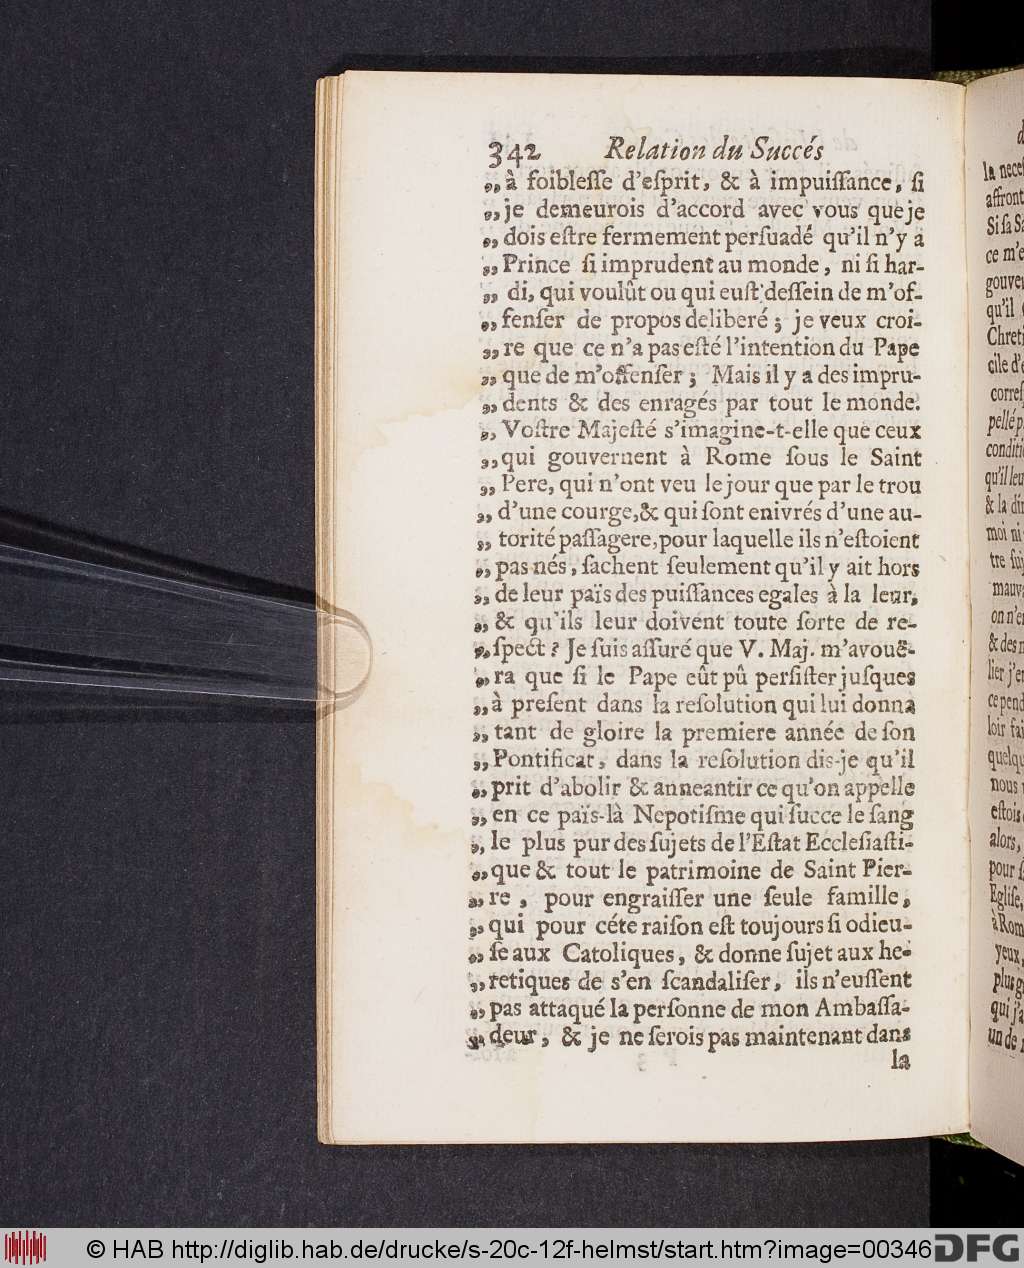 342 Relation du Succés
„ à foiblesſe d'eſprit, & à impuiſſance, ſi
„ je demeurois d'accord avec vous que je
„ dois eſtre fermement perſuadé qu'il n'y a
„ Prince ſi imprudent au monde, ni ſi har-
„ di, qui voulût ou qui euſt deſſein de m'of-
„ fenſer de propos deliberé; je veux croi-
„ re que ce n'a pas eſté l'intention du Pape
„ que de m'offenſer; Mais il y a des impru-
„ dents & des enragés par tout le monde.
„ Voſtre Majeſté s'imagine-t-elle que ceux
„ qui gouvernent à Rome ſous le Saint
„ Pere, qui n'ont veu le jour que par le trou
„ d'une courge, & qui ſont enivrés d'une au-
„ torité paſſagere, pour laquelle ils n'eſtoient
„ pas nés, ſachent ſeulement qu'il y ait hors
„ de leur païs des puiſſances egales à la leur,
„ & qu'ils leur doivent toute ſorte de re-
„ ſpect? Je ſuis aſſuré que V. Maj. m'avouë-
„ ra que ſi le Pape eût pû perſiſter juſques
„ à preſent dans la reſolution qui lui donna
„ tant de gloire la premiere année de ſon
„ Pontificat, dans la reſolution dis-je qu'il
„ prit d'abolir & anneantir ce qu'on appelle
„ en ce païs-là Nepotiſme qui ſucce le ſang
„ le plus pur des ſujets de l'Eſtat Eccleſiaſti-
„ que & tout le patrimoine de Saint Pier-
„ re, pour engraiſſer une ſeule famille,
„ qui pour céte raiſon eſt toujours ſi odieu-
„ ſe aux Catoliques, & donne ſujet aux he-
„ retiques de s'en ſcandaliſer, ils n'euſſent
„ pas attaqué la perſonne de mon Ambaſſa-
„ deur, & je ne ſerois pas maintenant dans
la
la neceſ
affront
Si ſa Sa
ce m'e
gouver
qu'il
Chreti
cile d'e
correſ
pellé p
conditi
qu'il leu
& la di
moi ni
tre ſui
mauva
on n'e
& des
lier j'e
ce pend
loir fai
quelqu
nous
eſtois
alors,
pour ſ
Egliſe,
à Rom
yeux,
plus g
qui j'a
un de
© HAB http://diglib.hab.de/drucke/s-20c-12f-helmst/start.htm?image=00346
DFG